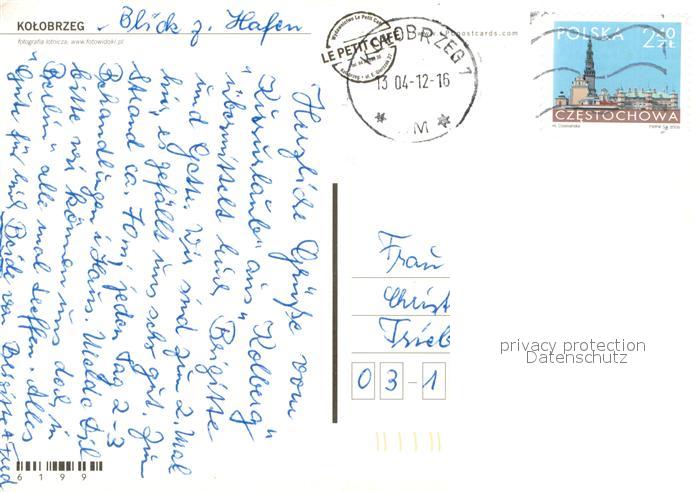 KOŁOBRZEG
Blick z. Hafen
fotografia lotnicza, www.fotowidoki.pl
Wydawnictwo Le Petit Café
LE PETIT CAFE
www.LPCpostcards.com
KOŁOBRZEG 1
13 04-12-16
M
POLSKA 2,50 ZŁ
CZĘSTOCHOWA
Herzliche Grüße vom
"Kurzurlaub" aus "Kolberg"
übermittelt Euch Brigitte
und Gatte. Wir sind zum 2. Mal
hier, es gefällt uns sehr gut. Zum
Strand ca. 70 m, jeden Tag 2-3
Behandlungen i. Haus. Melde Dich
bitte wir können uns doch in
"Berlin" alle mal treffen. Alles
Gute für Euch Beide von Brigitte +
Frau
Christ
Trieb
0 3-1
privacy protection
Datenschutz
6199